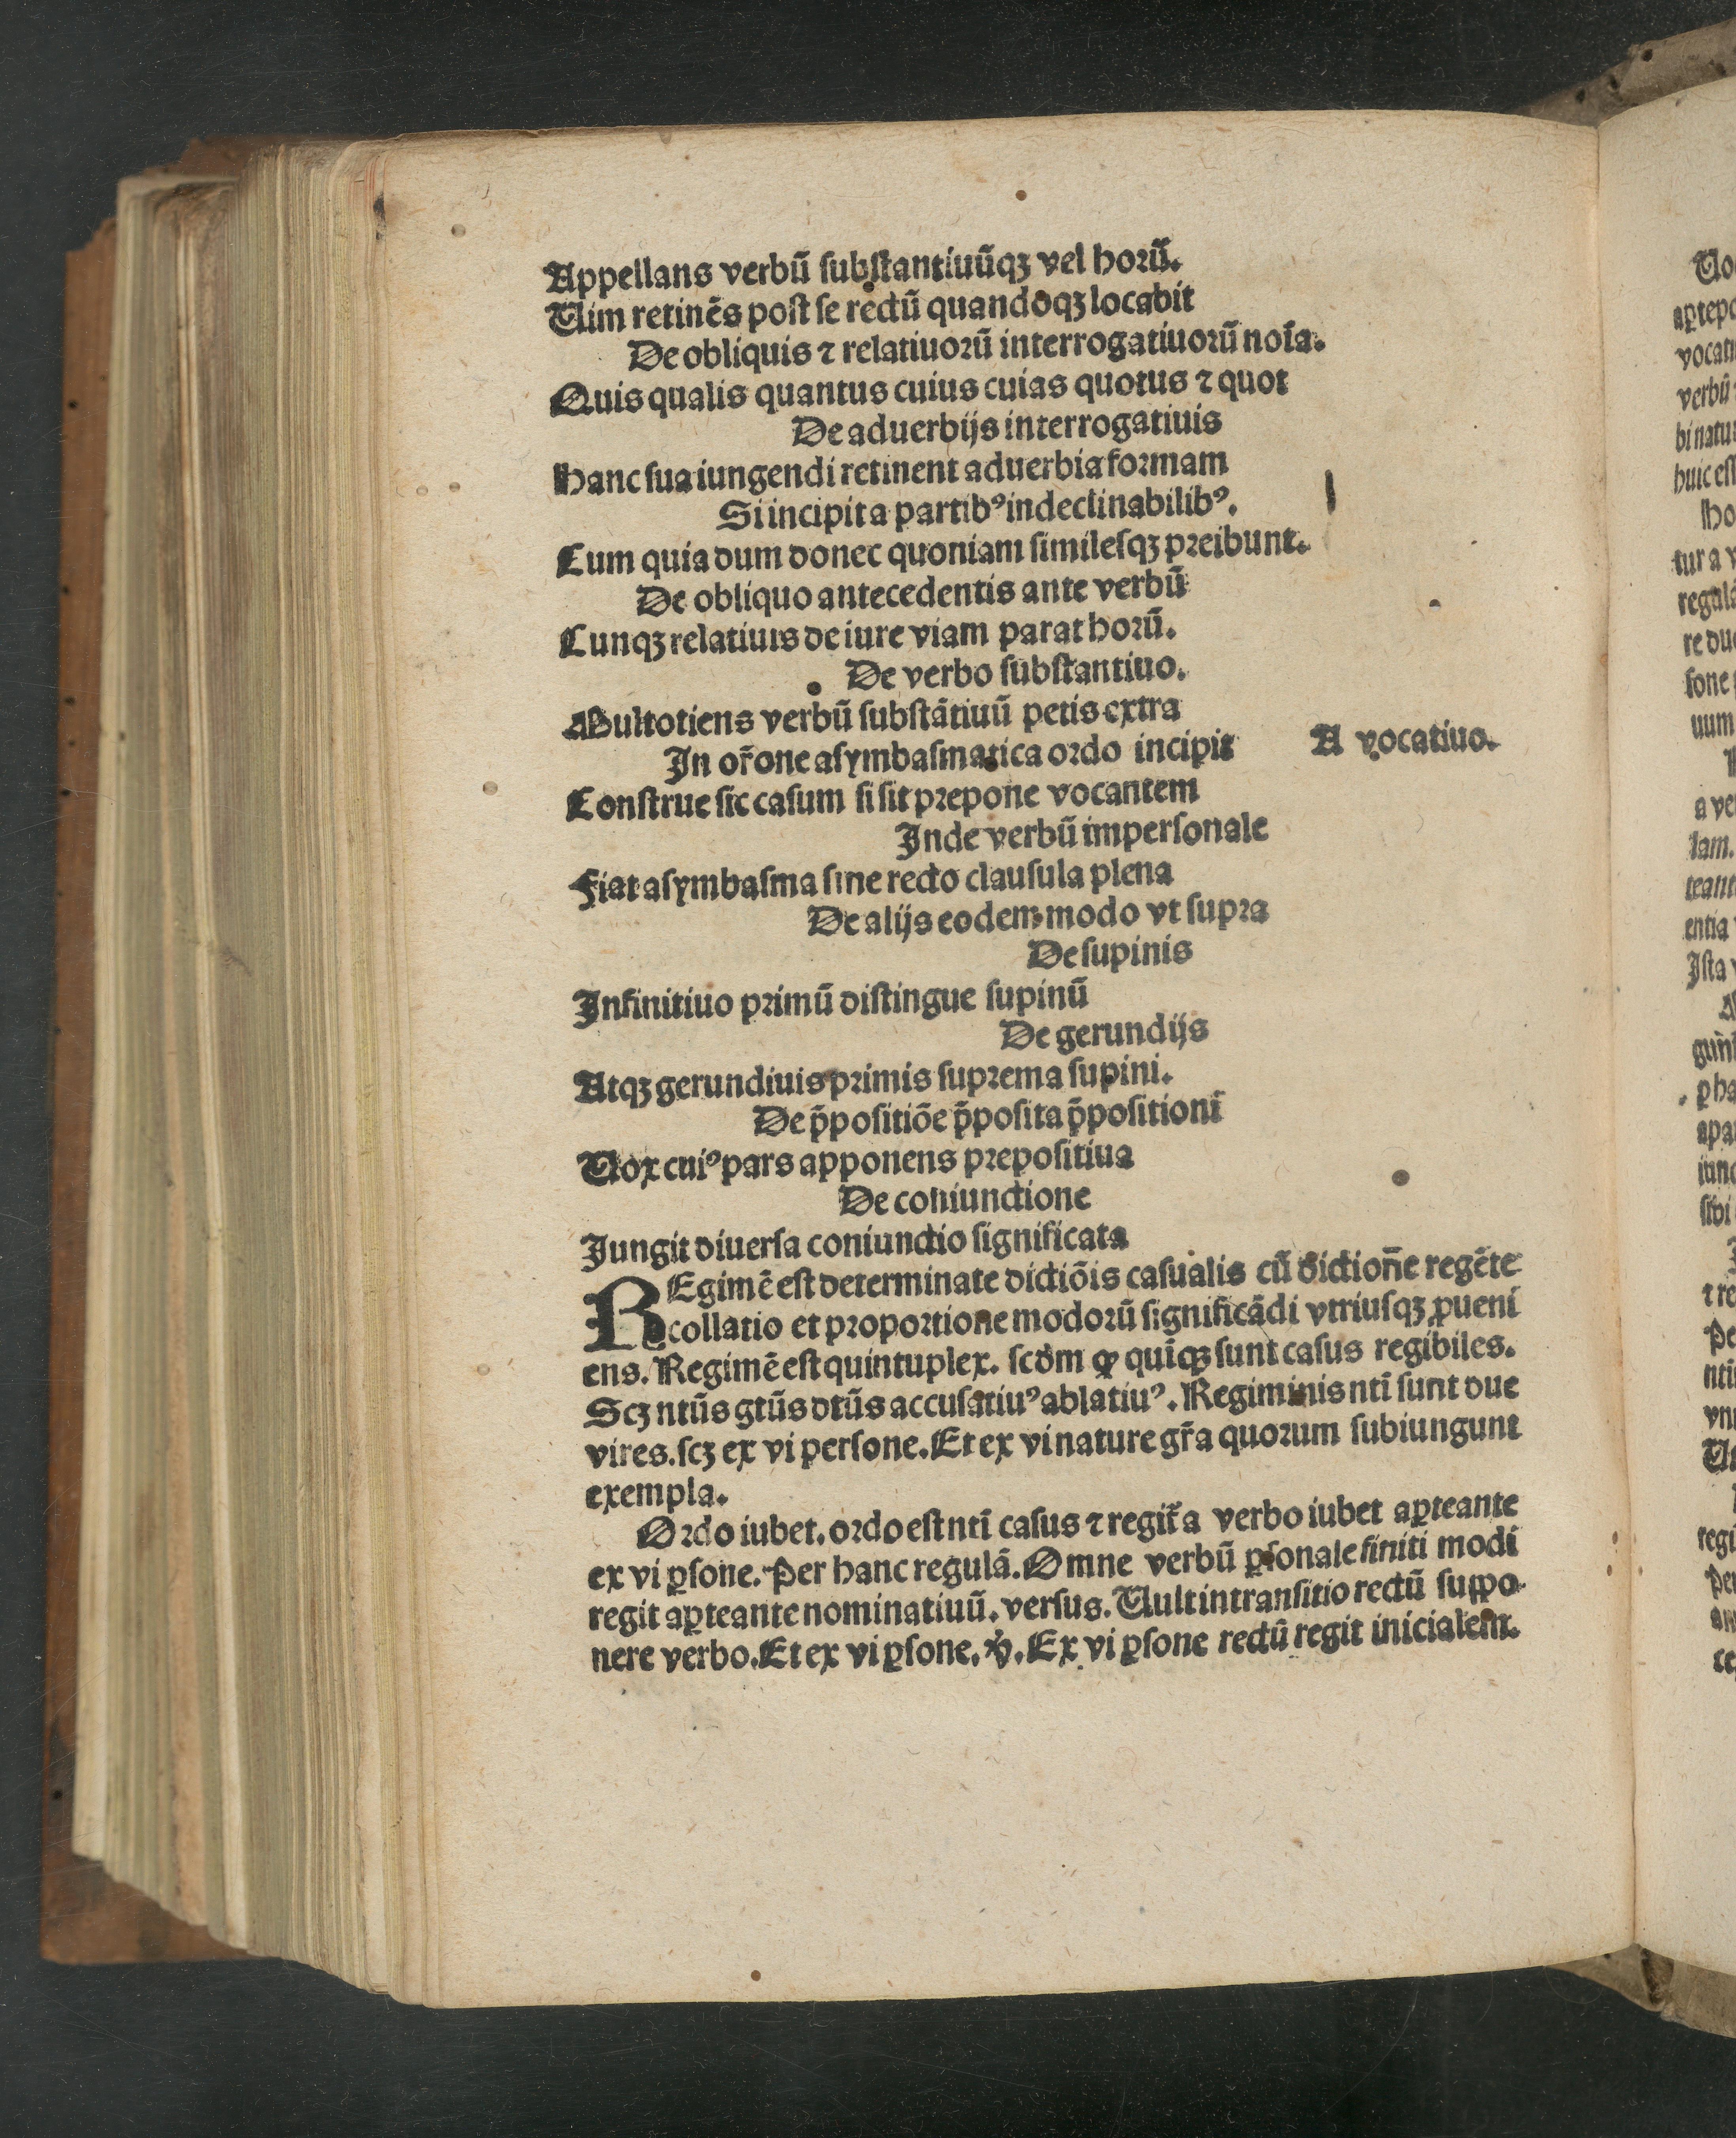 Appellans verbū ſubſtantiuūqꝫ vel horū.
Uim retinēs poſt ſe rectū quandoqꝫ locabit
De obliquis ⁊ relatiuorū interrogatiuorū noīa.
Quis qualis quantus cuius cuias quotus ⁊ quot
De aduerbijs interrogatiuis
Hanc ſua iungendi retinent aduerbia formam
Si incipit a partibꝰ indeclinabilibꝰ.
Cum quia dum donec quoniam ſimileſqꝫ preibunt.
De obliquo antecedentis ante verbū
Cunqꝫ relatiuis de iure viam parat horū.
De verbo ſubſtantiuo.
Multotiens verbū ſubſtātiuū petis extra
In or̄one aſymbaſmatica ordo incipit A vocatiuo.
Conſtrue ſic caſum ſi ſit prepone vocantem
Inde verbū imperſonale
Fiat aſymbaſma ſine recto clauſula plena
De alijs eodem modo vt ſupra
De ſupinis
Infinitiuo primū diſtingue ſupinū
De gerundijs
Atqꝫ gerundiuis primis ſuprema ſupini.
De p̄poſitiōe p̄poſita p̄poſitioni
Uox cuiꝰ pars apponens prepoſitiua
De coniunctione
Jungit diuerſa coniunctio ſignificata
REgimē eſt determinate dictiōis caſualis cū dictione regēte
collatio et proportione modorū ſignificādi vtriuſqꝫ ꝓueni
ens. Regimē eſt quintuplex. ſcdm ꝙ quīqꝫ ſunt caſus regibiles.
Scꝫ ntūs gtūs dtūs accuſatiuꝰ ablatiuꝰ. Regiminis ntī ſunt due
vires. ſcꝫ ex vi perſone. Et ex vi nature gr̄a quorum ſubiungunt
exempla.
Ordo iubet. ordo eſt ntī caſus ⁊ regit̄ a verbo iubet aꝑteante
ex vi ꝑſone. Per hanc regulā. Omne verbū ꝑſonale finiti modi
regit aꝑteante nominatiuū. verſus. Uult intranſitio rectū ſuppo
nere verbo. Et ex vi ꝑſone. ꝟ. Ex vi ꝑſone rectū regit inicialem.